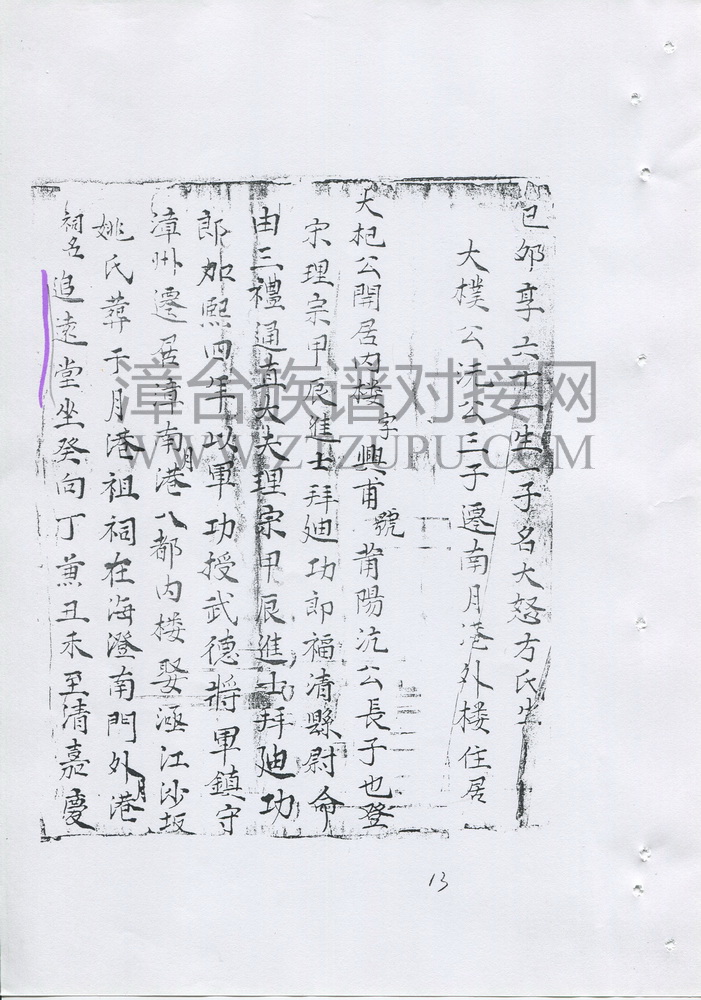 已邜享六十一生一子名大怒方氏生
大樸公沆公三子遷南月港外楼住居
大杞公閈居内楼字興甫號莆陽沆公長子也登
宋理宗甲辰進士拜廸功郎福清縣尉命
由三禮通直大夫理宗甲辰進士拜廸功
郎加熙四年以軍功授武德將軍鎮守
漳州遷居漳南月港八都内楼娶涵江沙坂
姚氏葬于月港祖祠在海澄南門外月港
祠名追遠堂坐癸向丁兼丑未至清嘉慶
漳台族谱对接网
WWW.ZTZUPU.COM
13